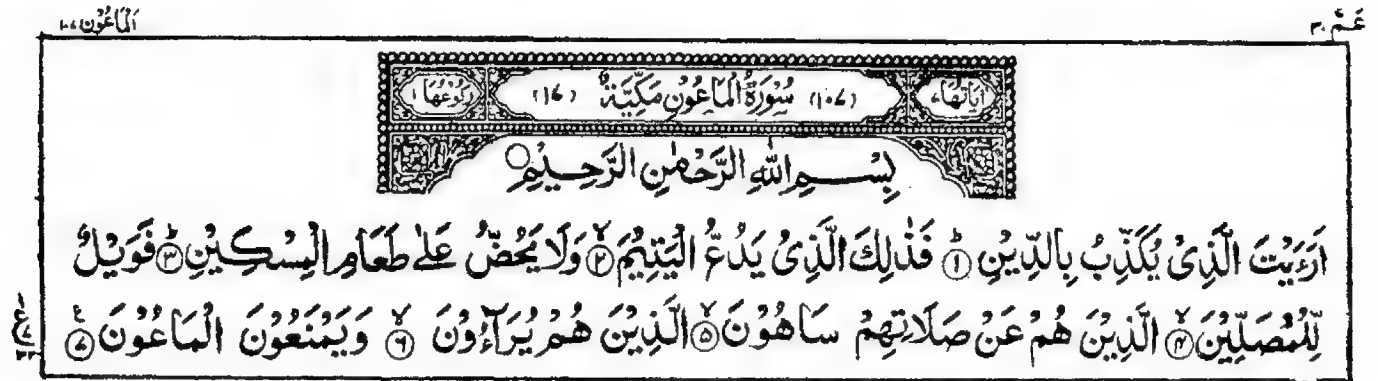 عَمَّ ٣٠
اَلْمَاعُوْن ١٠٧
اٰيَاتُهَا ٧ (١٠٧) سُوْرَةُ الْمَاعُوْنِ مَكِّيَّةٌ (١٧) رُكُوْعُهَا ١
بِسْمِ اللّٰهِ الرَّحْمٰنِ الرَّحِيْمِ
اَرَءَيْتَ الَّذِىْ يُكَذِّبُ بِالدِّيْنِ ﴿١﴾ فَذٰلِكَ الَّذِىْ يَدُعُّ الْيَتِيْمَ ﴿٢﴾ وَلَا يَحُضُّ عَلٰى طَعَامِ الْمِسْكِيْنِ ﴿٣﴾ فَوَيْلٌ
لِّلْمُصَلِّيْنَ ﴿٤﴾ الَّذِيْنَ هُمْ عَنْ صَلَاتِهِمْ سَاهُوْنَ ﴿٥﴾ الَّذِيْنَ هُمْ يُرَآءُوْنَ ﴿٦﴾ وَيَمْنَعُوْنَ الْمَاعُوْنَ ﴿٧﴾